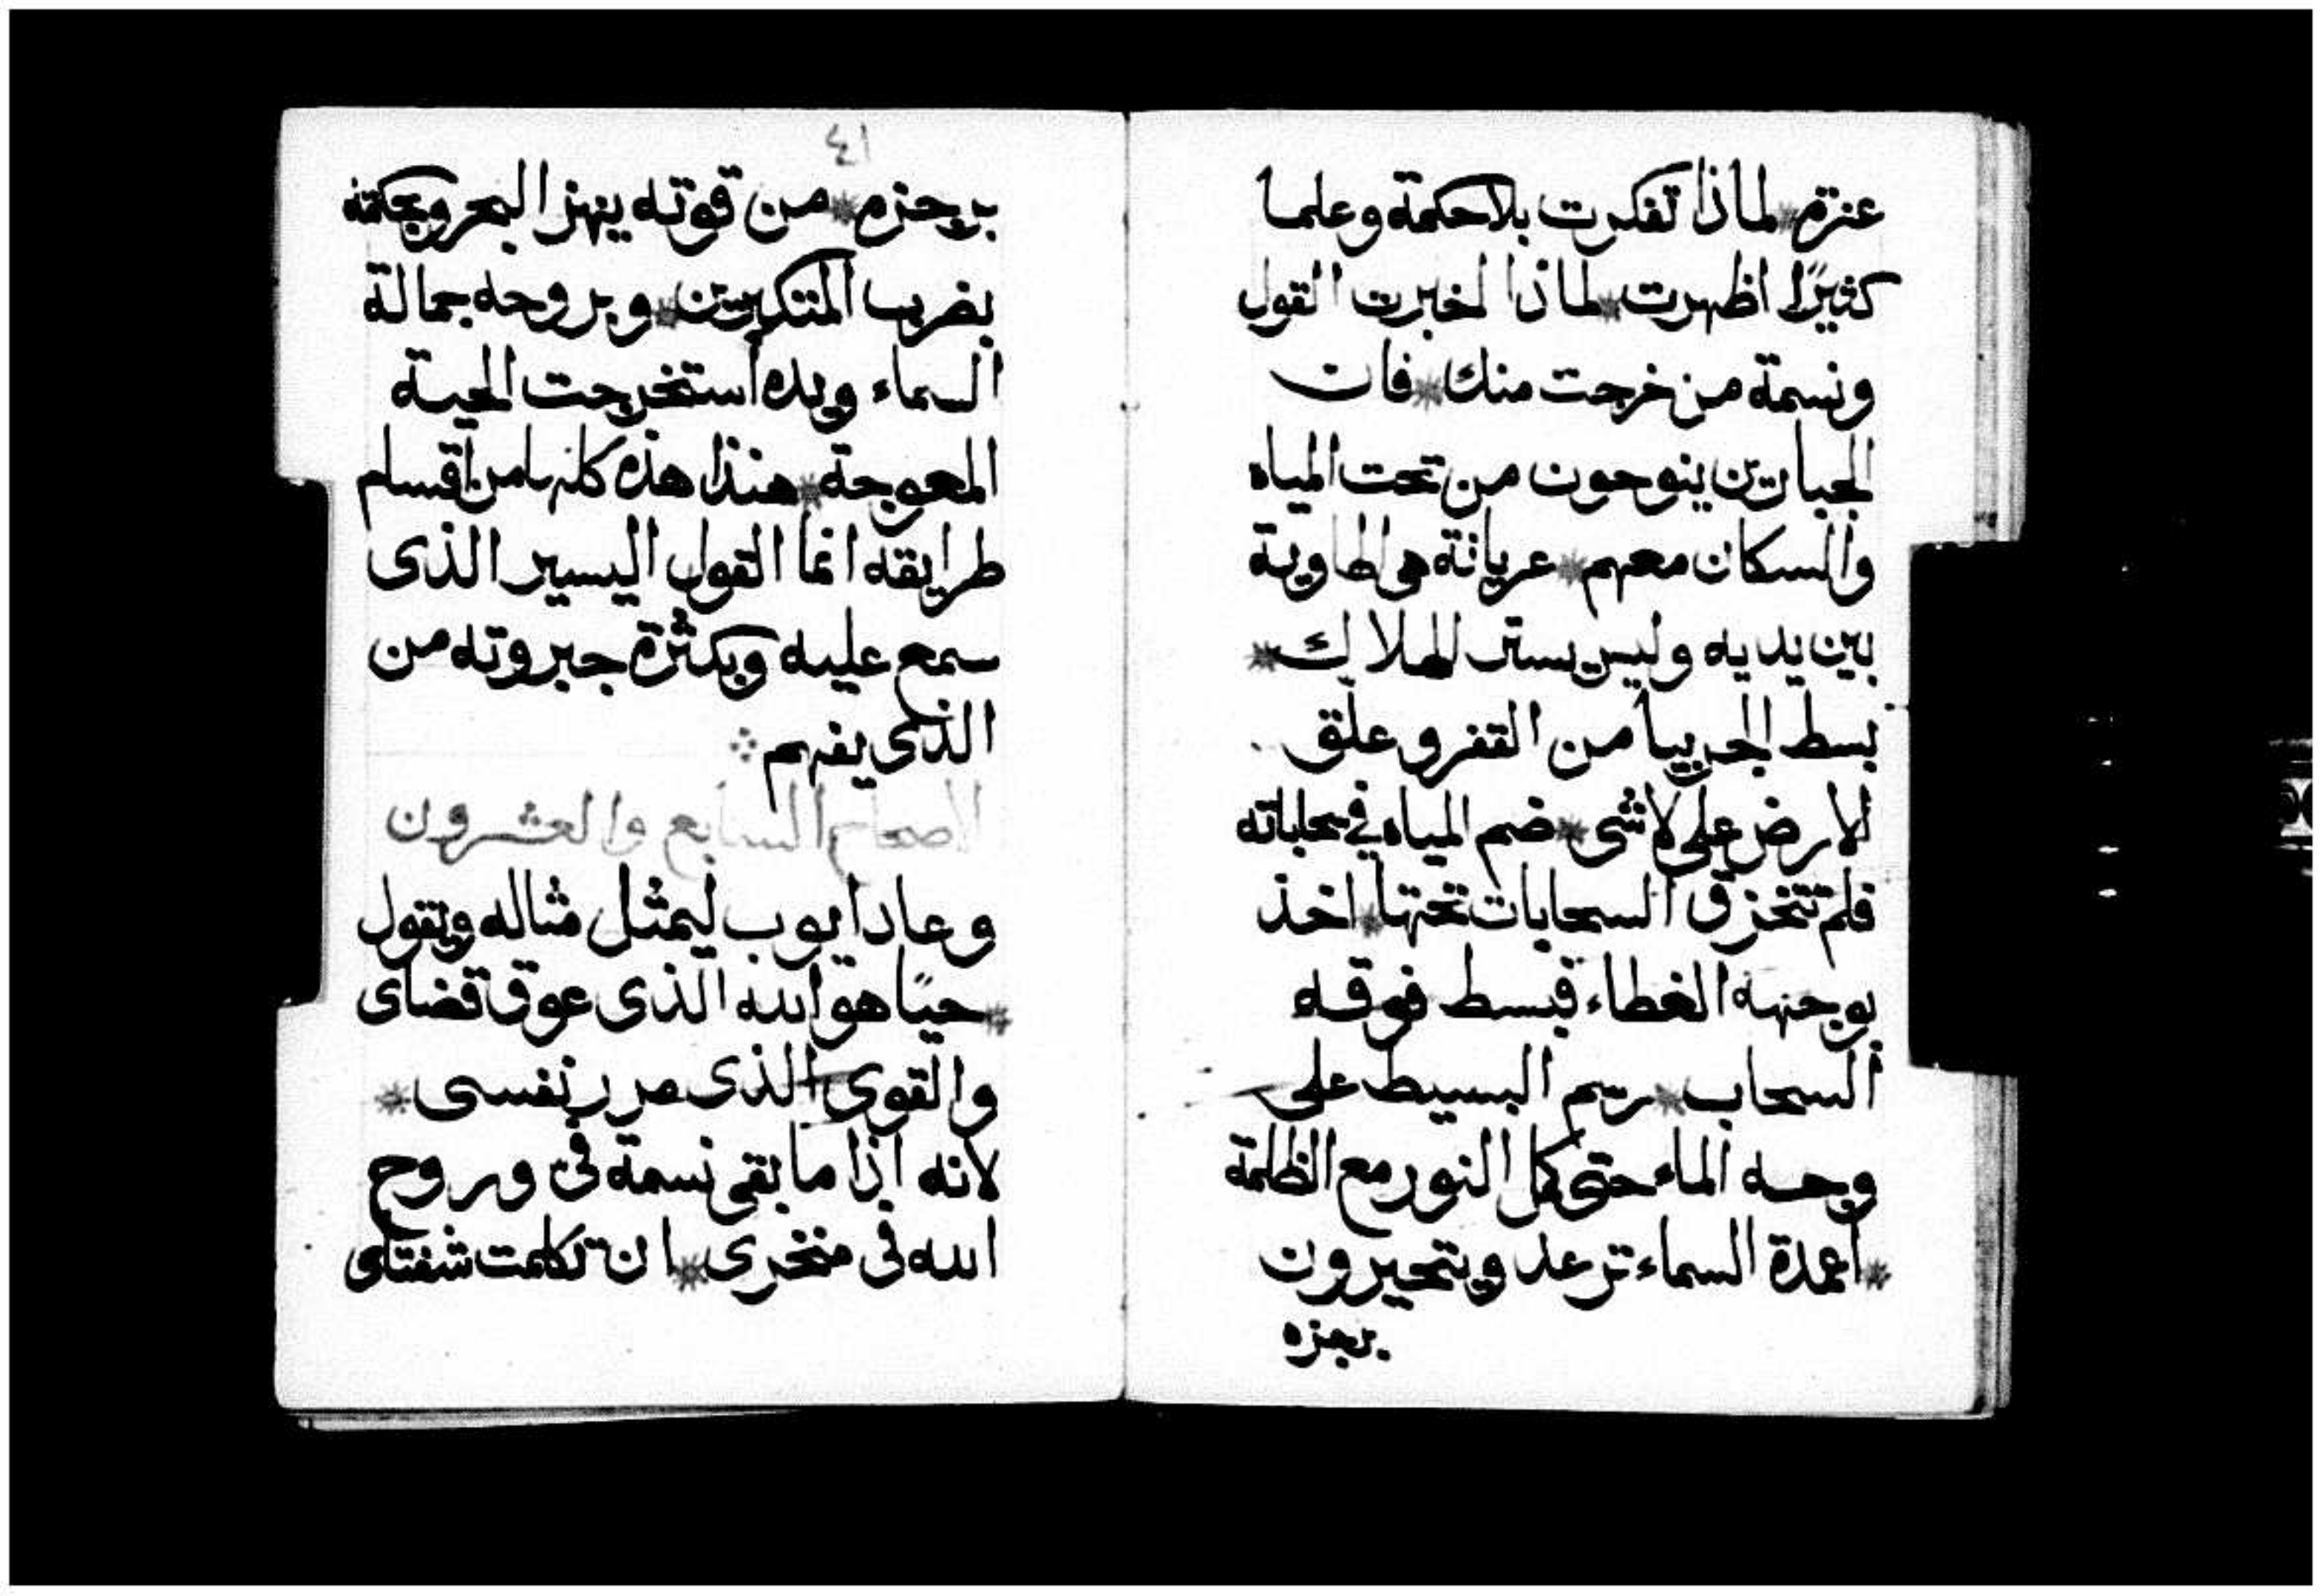 عزم * لماذا تفكرت بلا حكمة وعلما
كثيرًا اظهرت * لماذا اخبرت القول
ونسمة من خرجت منك * فان
الجبارين ينوحون من تحت المياه
والسكان معهم * عريانة هى الهاوية
بين يديه وليس يستر للهلاك *
بسط الجربيا من القفر وعلّق
الارض على لا شى * ضم المياه في سحاباته
فلم تتخزق السحابات تحتها * اخذ
بوجنه الغطاء فبسط فوقه
السحاب * رسم البسيط على
وجه الماء حتى كمل النور مع الظلمة
* اعمدة السماء ترعد ويتحيرون
بزجره
٤١
بزجره * من قوته يهز البحر وبحكمته
يضرب المتكبرين * وبروحه جمالة
السماء وبيده استخرجت الحية
المعوجة * هنذا هذه كلها من اقسام
طرايقه انما القول اليسير الذى
سمع عليه وبكثرة جبروته من
الذى يفهم
الاصحاح السابع والعشرون
وعاد ايوب ليمثل مثاله ويقول
* حيًا هو الله الذى عوق قضاى
والقوى الذى مرر نفسى *
لانه اذا ما بقى نسمة فىّ وروح
الله فى منخرى * ان تكلمت شفتاى